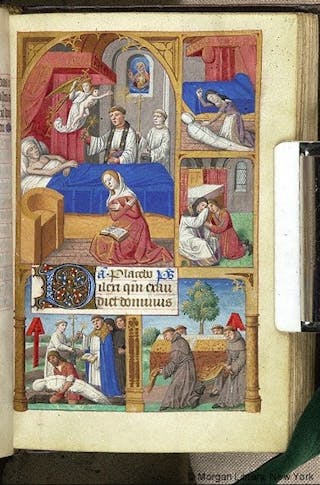 a. Placebo ps
Dilexi qm̄ exau
diet dominus
© Morgan Library, New York